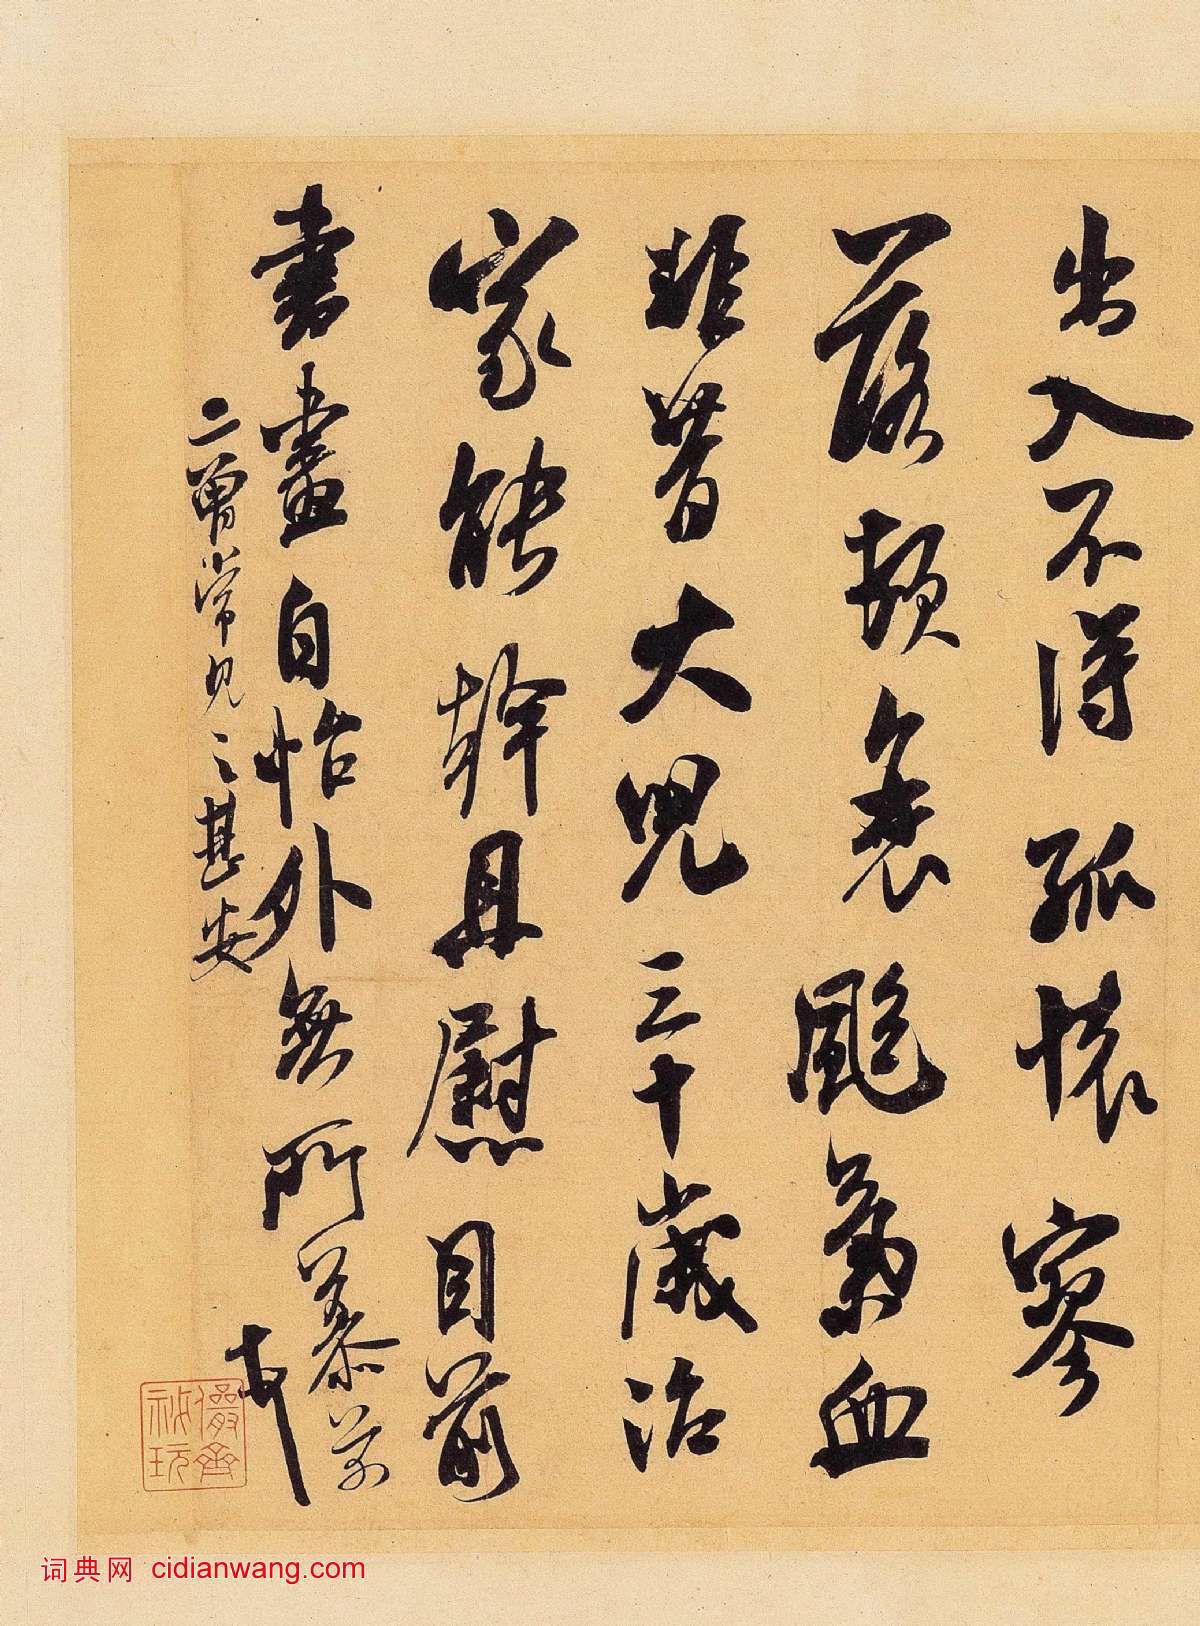 出入不得孤懷寥
落頓衰颯氣血
非昔大兒三十歲治
家能幹且慰目前
書畫自怡外無所慕芾
二曾常見之甚安
儼齋
秘玩
词典网 cidianwang.com